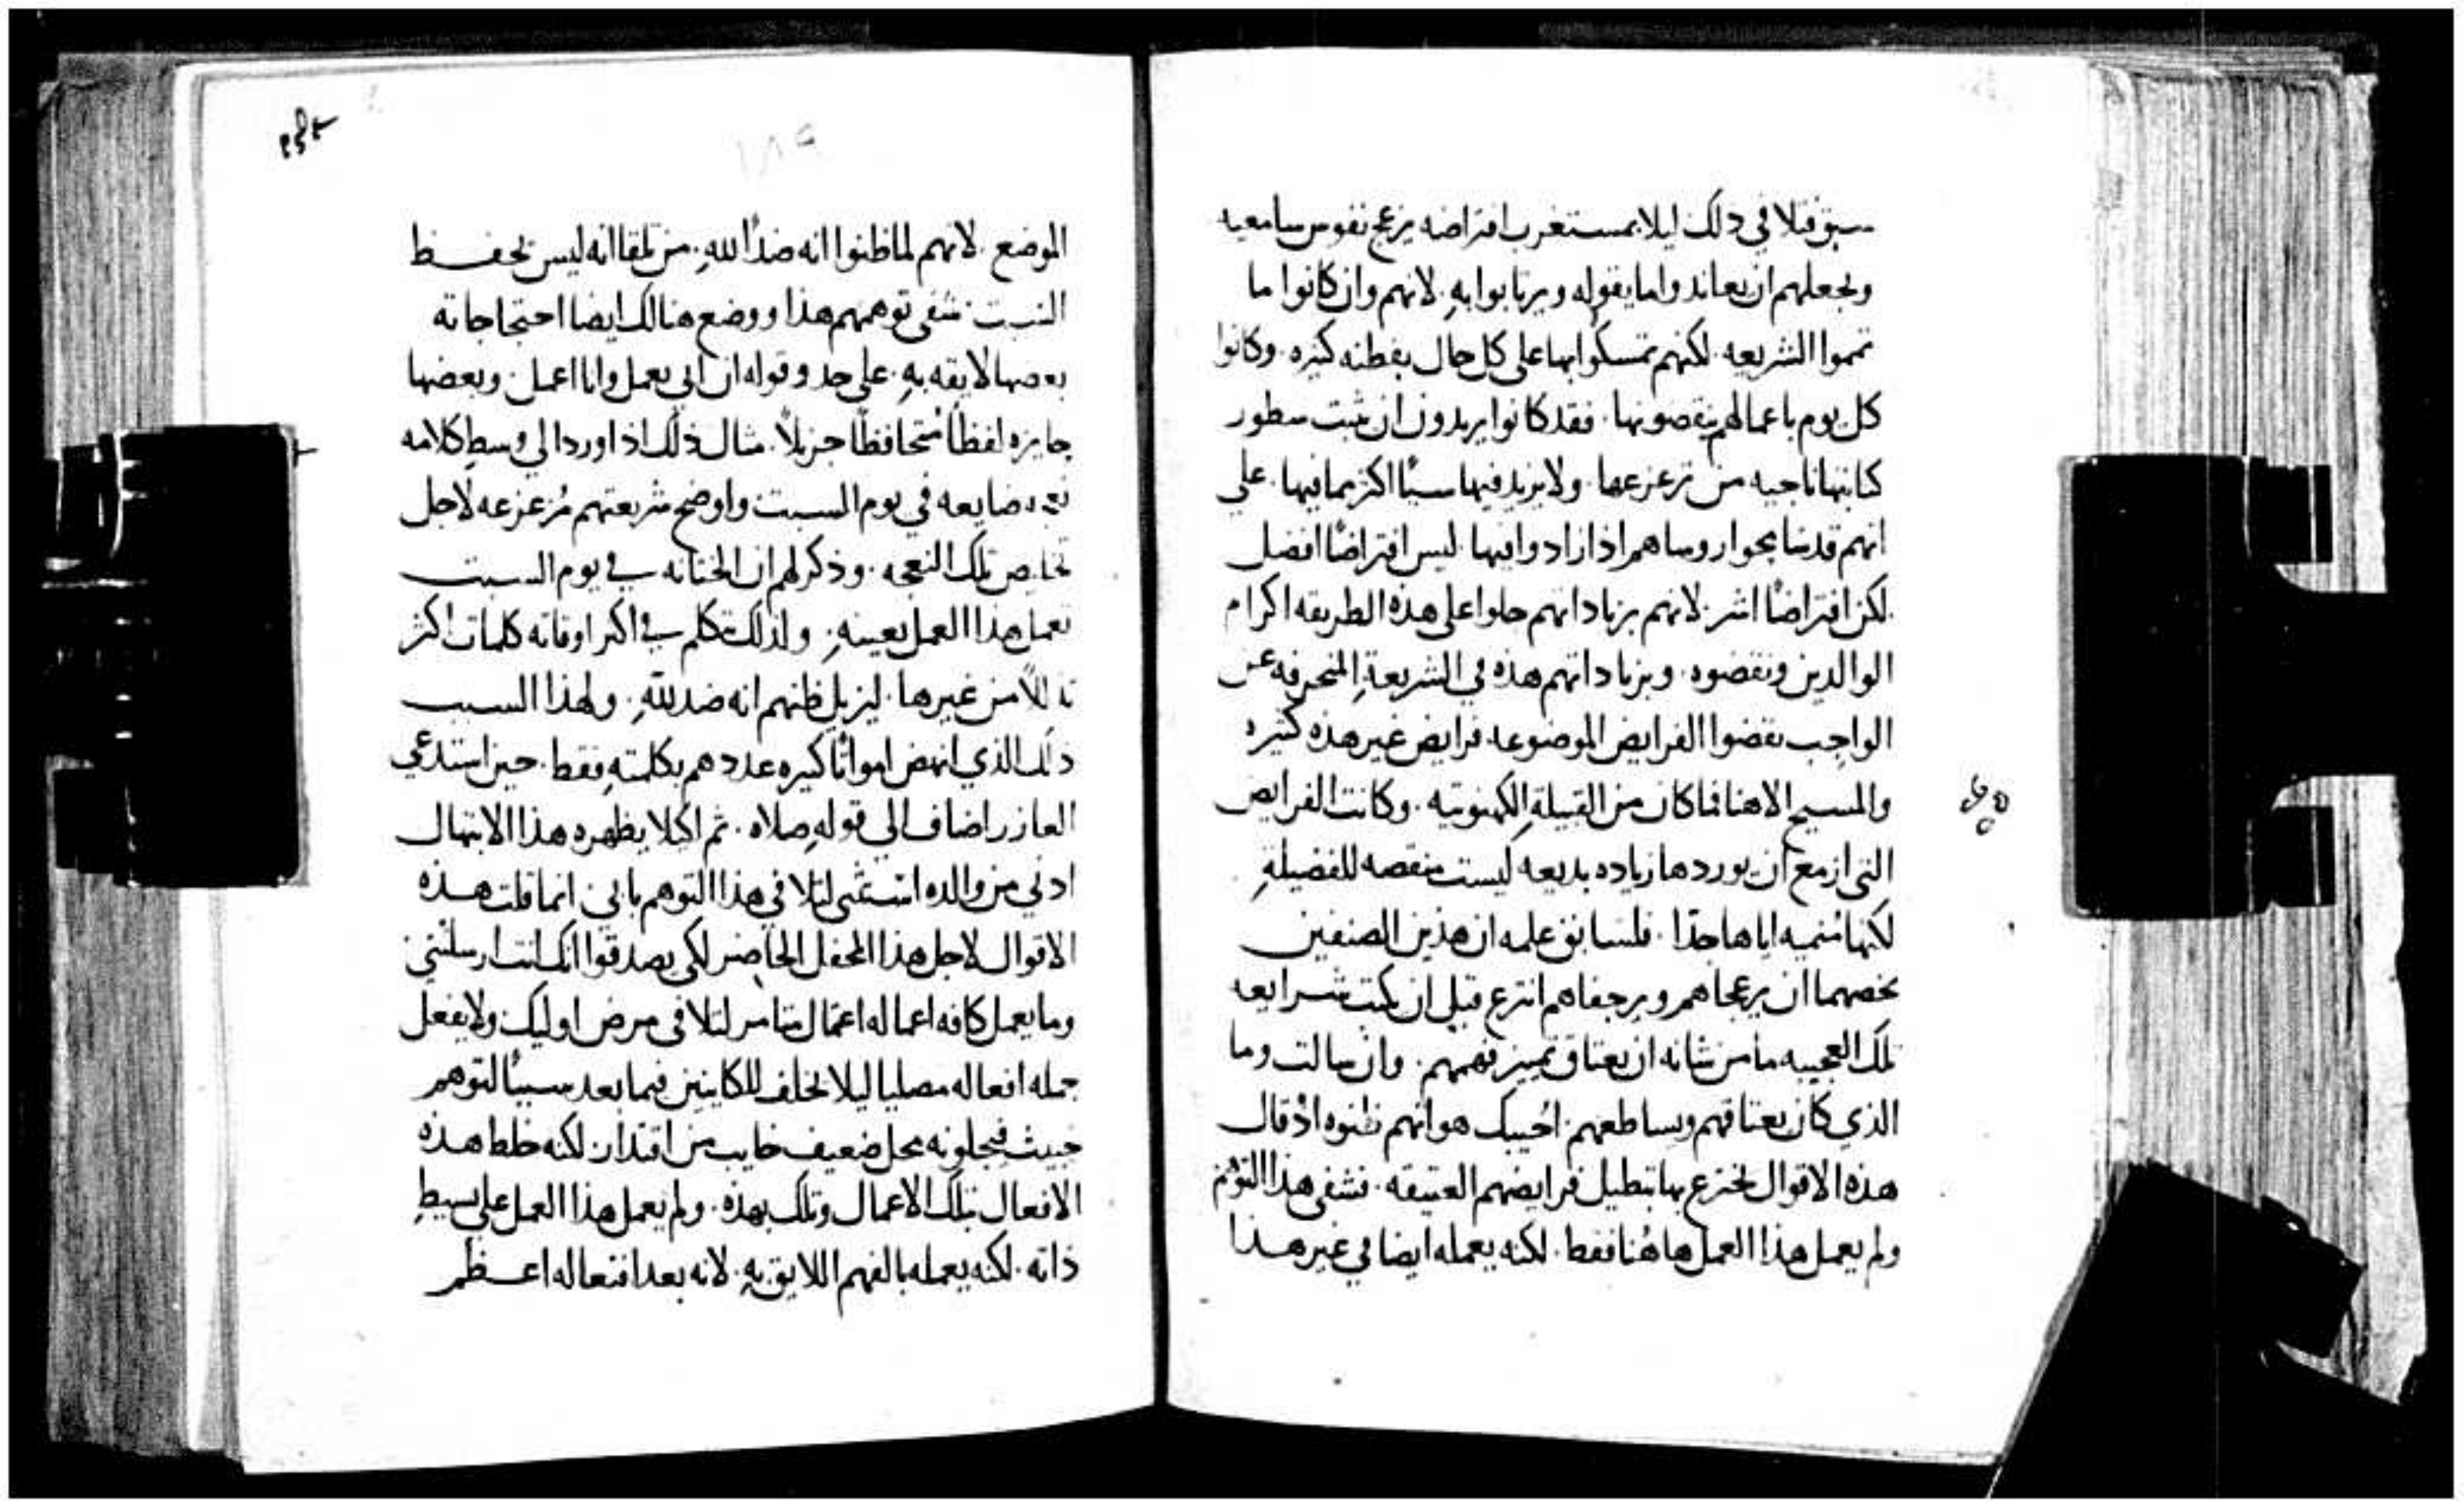 سبق فتلافي ذلك ليلا بمستغرب افتراضه يزعج نفوس سامعيه
ويجعلهم ان يعاندوا ما يقوله ويرتابوا به. لانهم وان كانوا ما
تمموا الشريعه. لكنهم تمسكوا بها على كل حال بفطنه كثيره. وكانوا
كل يوم باعمالهم ينقضونها. فقد كانوا يريدون ان تثبت سطور
كتابتها ناجيه من تزعزعها. ولا يزيد فيها سببًا اكثر مما فيها. على
انهم قد تشامحوا روساهم اذا زادوا فيها. ليس افتراضًا افضل
لكن افتراضًا اشر. لانهم بزياداتهم حلوا على هذه الطريقه اكرام
الوالدين ونقضوه. وبزياداتهم هذه في الشريعةِ المنحرفه عن
الواجب نقضوا الفرايض الموضوعه. فرايض غير هذه كثيره
والمسيح الاهنا فما كان من القبيلةِ الكهنوتيه. وكانت الفرايض
التي ازمع ان يوردها زياده بديعه ليست منقصه للفضيلةِ
لكنها مُنميه اياها جدًا. فلسابق علمه ان هذين الصنفين
يخصهما ان يزعجاهم ويرجفاهم انتزع قبل ان يكتب شرايعه
تلك العجيبه ما من شانه ان يعتاق تمييز فهمهم. وان سالت وما
الذي كان يعتاقهم ويساطعهم. اُجيبك هو انهم ظنوه اذ قال
هذه الاقوال يخترع بها تبطيل فرايضهم العتيقه. فشفى هذا التوهم
ولم يعمل هذا العمل هاهُنا فقط. لكنه يعمله ايضا في غير هذا
١٨٩
الموضع. لانهم لما ظنوا انه ضدًا للهِ. من تلقا انه ليس يحفظ
السبت. شفى توهمهم هذا ووضع هنالك ايضا احتجاجاته
بعضها لايقه بهِ. على حد وقوله ان ابي يعمل وانا اعمل. وبعضها
جايزه لفظًا متحافظًا جزيلاً. مثال ذلك اذ اورد الي وسط كلامه
نعجه ضايعه في يوم السبت واوضح شريعتهم مُزعزعه لاجل
تخليص تلك النعجه. وذكر لهم ان الختانه في يوم السبت
تعمل هذا العمل بعينهِ. ولذلك تكلم في اكثر اوقاته كلمات اكثر
من غيرها. ليزيل ظنهم انه ضد للّهِ. ولهذا السبب
ذلك الذي انهض امواتًا كثيره عددهم بكلمتهِ فقط. حين استدعي
العازر اضاف الى قولهِ صلاه. ثم لكيلا يظهره هذا الابتهال
ادني من والده استثنى لتلافي هذا التوهم باني انما قلت هذه
الاقوال لاجل هذا المحفل الحاضر لكي يصدقوا انك انت ارسلتني
وما يعمل كافه اعماله اعمال متامر لتلافي مرض اوليك ولا يفعل
جمله افعاله مصليا ليلا يخلف للكاينين فيما بعد سببًا لتوهم
خبيث فيجلونه محل ضعيف خايب من اقتدار. لكنه خلط هذه
الافعال بتلك الاعمال وتلك بهذه. ولم يعمل هذا العمل على بسيطِ
ذاته. لكنه يعمله بالفهم اللايق بهِ. لانه بعد افتعاله اعظم